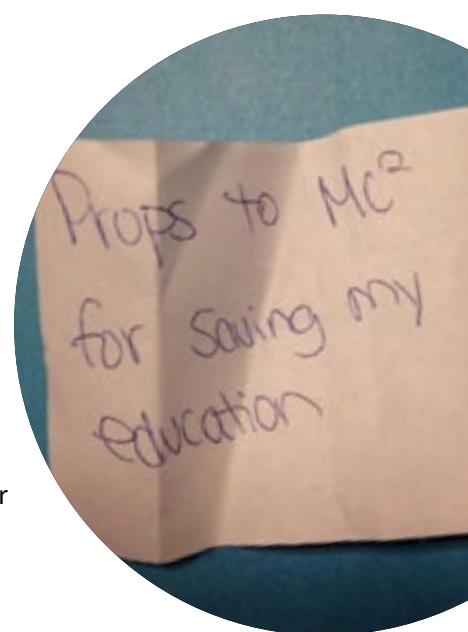 Props to MC²
for saving my
education
r